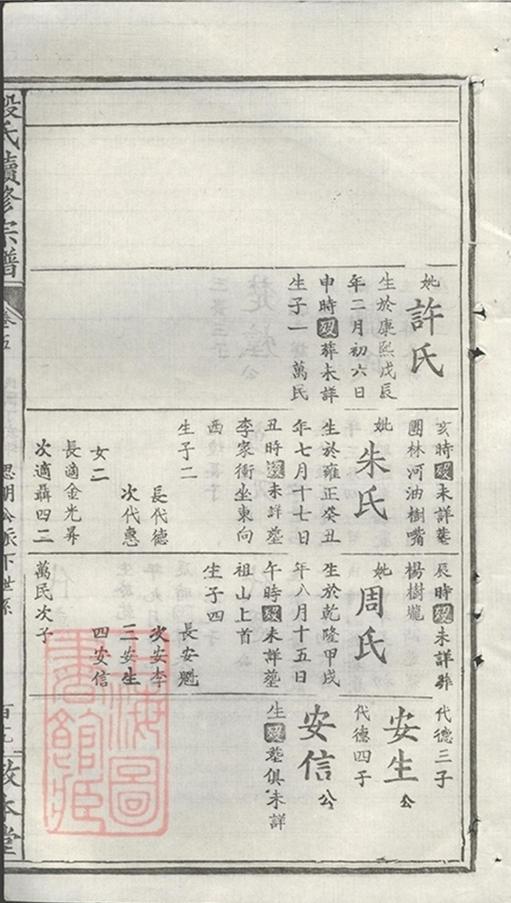 妣許氏
生於康熙戊辰
年二月初六日
申時歿葬未詳
生子一萬民
亥時歿未詳塟
團林河油樹嘴
妣朱氏
生於雍正癸丑
年七月十七日
丑時歿未詳塟
李家衝坐東向
西
生子二
長代德
次代惠
女二
長適金光昇
次適聶四二
辰時歿未詳
楊樹壠
妣周氏
生於乾隆甲戌
年八月十五日
午時歿未詳塟
祖山上首
生子四
長安魁
次安李
三安生
四安信
萬民次子
代德三子
安生公
代德四子
安信公
生歿塟俱未詳
段氏續修宗譜
卷五
思明公派下世系
敦本堂
上海圖
書館藏